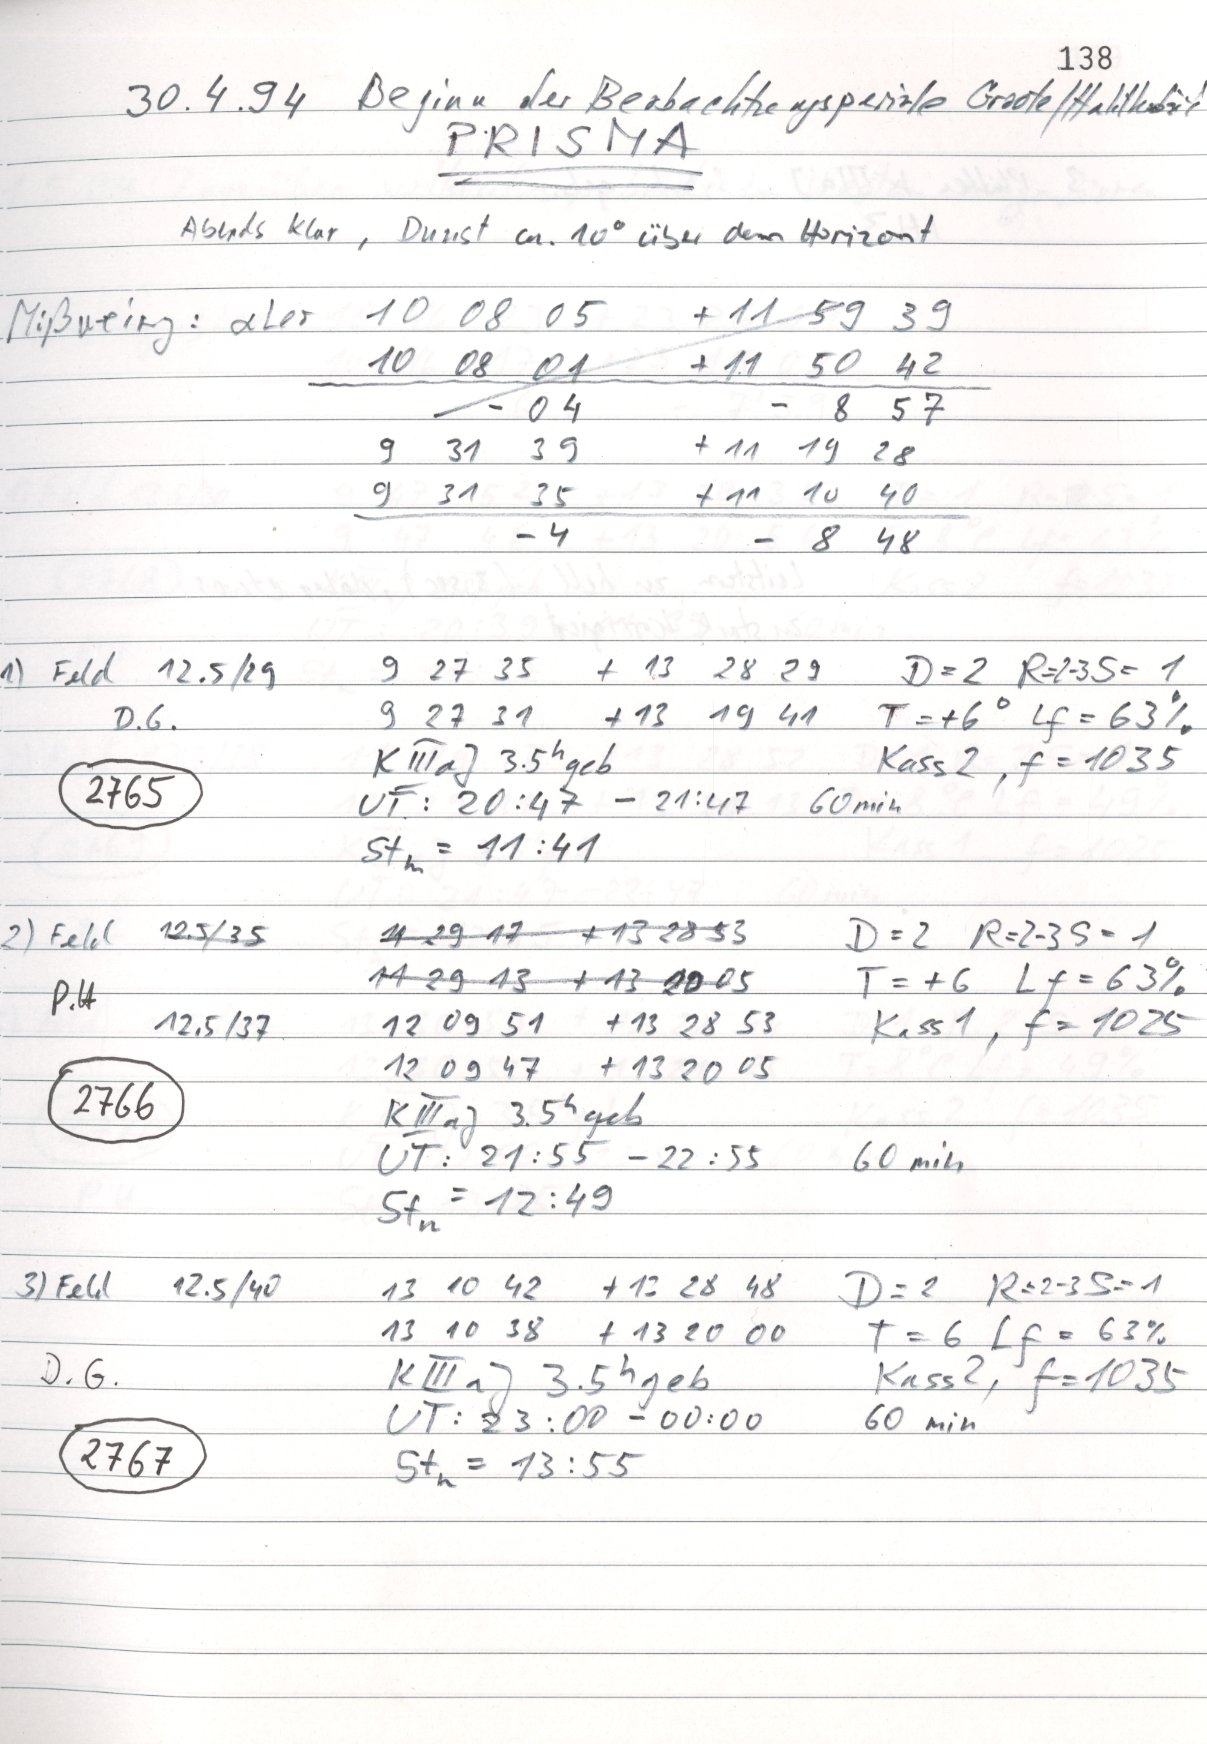 138
30.4.94 Beginn der Beobachtungsperiode Groote/
PRISMA
Abends klar, Dunst ca. 10° über dem Horizont
Mißweing: αLeo 10 08 05 +11 59 39
10 08 01 +11 50 42
- 04 - 8 57
9 31 39 +11 19 28
9 31 35 +11 10 40
- 4 - 8 48
1) Feld 12.5/29 9 27 35 + 13 28 29 D=2 R=2-3 S=1
D.G. 9 27 31 +13 19 41 T=+6° Lf=63%
K IIIaJ 3.5h geb Kass 2, f=1035
2765 UT: 20:47 - 21:47 60 min
Stm = 11:41
2) Feld 12.5/35 11 29 17 +13 28 53 D=2 R=2-3 S=1
P.H 11 29 13 +13 20 05 T=+6 Lf=63%
12.5/37 12 09 51 +13 28 53 Kass 1, f=1025
12 09 47 +13 20 05
2766 K IIIaJ 3.5h geb
UT: 21:55 - 22:55 60 min
Stm = 12:49
3) Feld 12.5/40 13 10 42 +13 28 48 D=2 R=2-3 S=1
13 10 38 +13 20 00 T=6 Lf=63%
D.G. K IIIaJ 3.5h geb Kass 2, f=1035
UT: 23:00 - 00:00 60 min
2767 Stm = 13:55